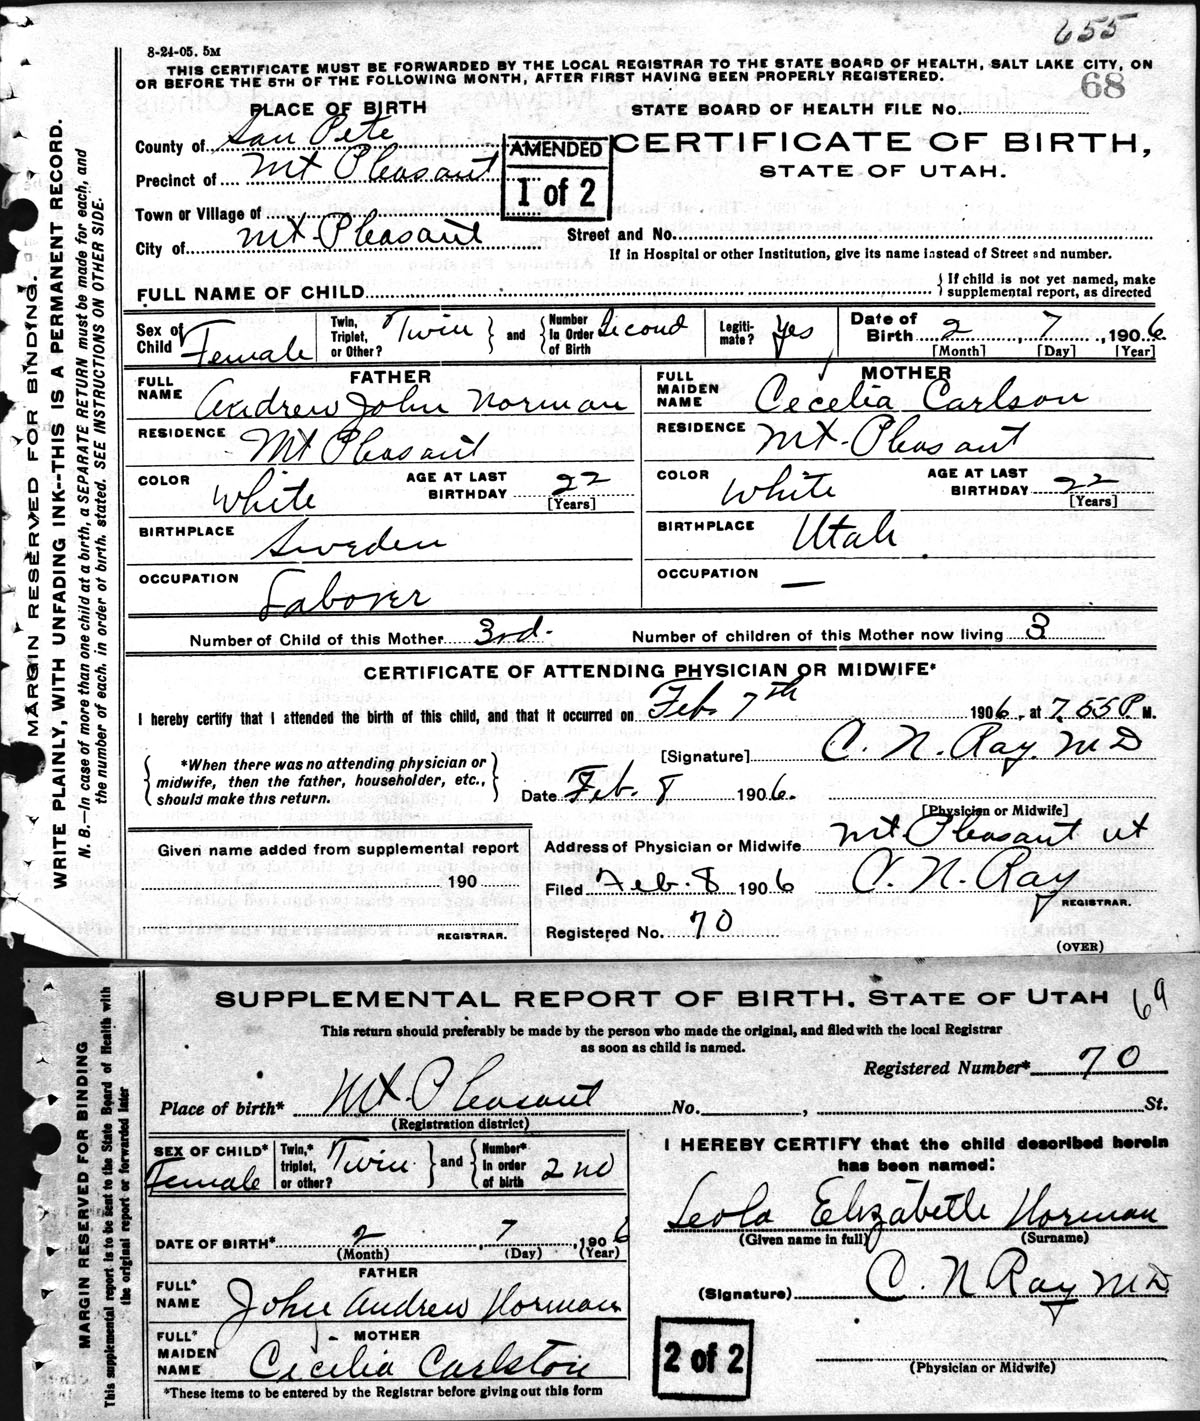 655
8-24-05. 5M
THIS CERTIFICATE MUST BE FORWARDED BY THE LOCAL REGISTRAR TO THE STATE BOARD OF HEALTH, SALT LAKE CITY, ON
OR BEFORE THE 5TH OF THE FOLLOWING MONTH, AFTER FIRST HAVING BEEN PROPERLY REGISTERED.
68
PLACE OF BIRTH
STATE BOARD OF HEALTH FILE NO.
County of San Pete
CERTIFICATE OF BIRTH,
AMENDED
1 of 2
Precinct of Mt Pleasant
STATE OF UTAH.
Town or Village of
City of Mt. Pleasant
Street and No.
If in Hospital or other Institution, give its name instead of Street and number.
FULL NAME OF CHILD
{ If child is not yet named, make
supplemental report, as directed
Sex of Child Female
Twin, Triplet, or Other? Twin } and { Number In Order of Birth Second
Legitimate? Yes
Date of Birth 2, 7, 1906
[Month] [Day] [Year]
FATHER
MOTHER
FULL NAME Andrew John Norman
FULL MAIDEN NAME Cecelia Carlson
RESIDENCE Mt Pleasant
RESIDENCE Mt. Pleasant
COLOR White AGE AT LAST BIRTHDAY 22 [Years]
COLOR White AGE AT LAST BIRTHDAY 22 [Years]
BIRTHPLACE Sweden
BIRTHPLACE Utah.
OCCUPATION Laborer
OCCUPATION —
Number of Child of this Mother 3rd. Number of children of this Mother now living 3
CERTIFICATE OF ATTENDING PHYSICIAN OR MIDWIFE*
I hereby certify that I attended the birth of this child, and that it occurred on Feb. 7th 1906, at 7.55 P.M.
{ *When there was no attending physician or
midwife, then the father, householder, etc.,
should make this return. }
[Signature] C. N. Ray. M D
Date Feb. 8 1906.
[Physician or Midwife]
Given name added from supplemental report
190
REGISTRAR.
Address of Physician or Midwife Mt. Pleasant ut
Filed Feb. 8 1906 C. N. Ray
REGISTRAR.
Registered No. 70
(OVER)
MARGIN RESERVED FOR BINDING.
WRITE PLAINLY, WITH UNFADING INK--THIS IS A PERMANENT RECORD.
N. B.—In case of more than one child at a birth, a SEPARATE RETURN must be made for each, and
the number of each, in order of birth, stated. SEE INSTRUCTIONS ON OTHER SIDE.
SUPPLEMENTAL REPORT OF BIRTH, STATE OF UTAH
69
This return should preferably be made by the person who made the original, and filed with the local Registrar
as soon as child is named.
Registered Number* 70
Place of birth* Mt. Pleasant No. , St.
(Registration district)
SEX OF CHILD* Female
Twin,* triplet, or other? Twin } and { Number* in order of birth 2nd
I HEREBY CERTIFY that the child described herein
has been named:
Leola Elizabeth Norman
(Given name in full) (Surname)
DATE OF BIRTH* 2, 7, 1906
(Month) (Day) (Year)
FATHER
FULL* NAME John Andrew Norman
(Signature) C. N Ray M D
MOTHER
FULL* MAIDEN NAME Cecilia Carlston
2 of 2
(Physician or Midwife)
*These items to be entered by the Registrar before giving out this form
MARGIN RESERVED FOR BINDING
This supplemental report is to be sent to the State Board of Health with
the original report or forwarded later